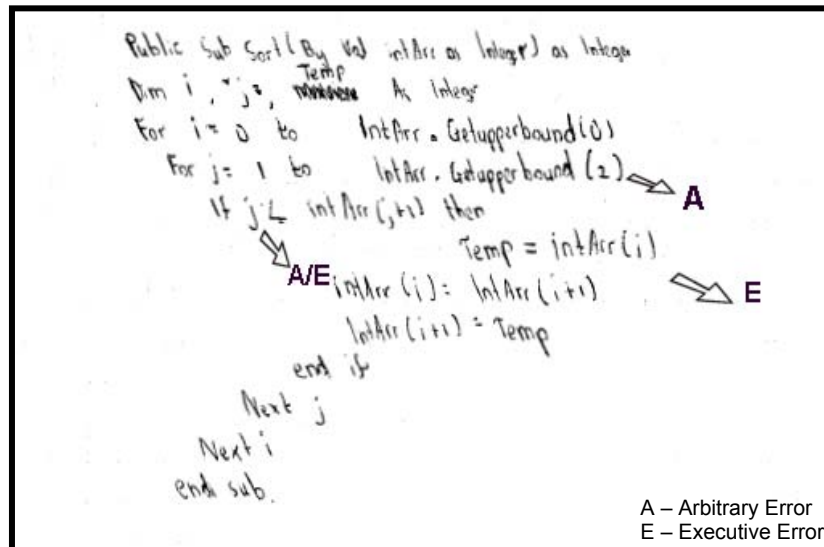 Public Sub Sort (By Val intArr as Integer) as Integer
Temp
Dim i, "j", As Integer
For i = 0 to IntArr.Getupperbound(0)
For j = 1 to IntArr.Getupperbound(2) A
If j < intArr(j+1) then
Temp = intArr(i)
A/E intArr(i) = IntArr(i+1) E
IntArr(i+1) = Temp
end if
Next j
Next i
end sub.
A – Arbitrary Error
E – Executive Error